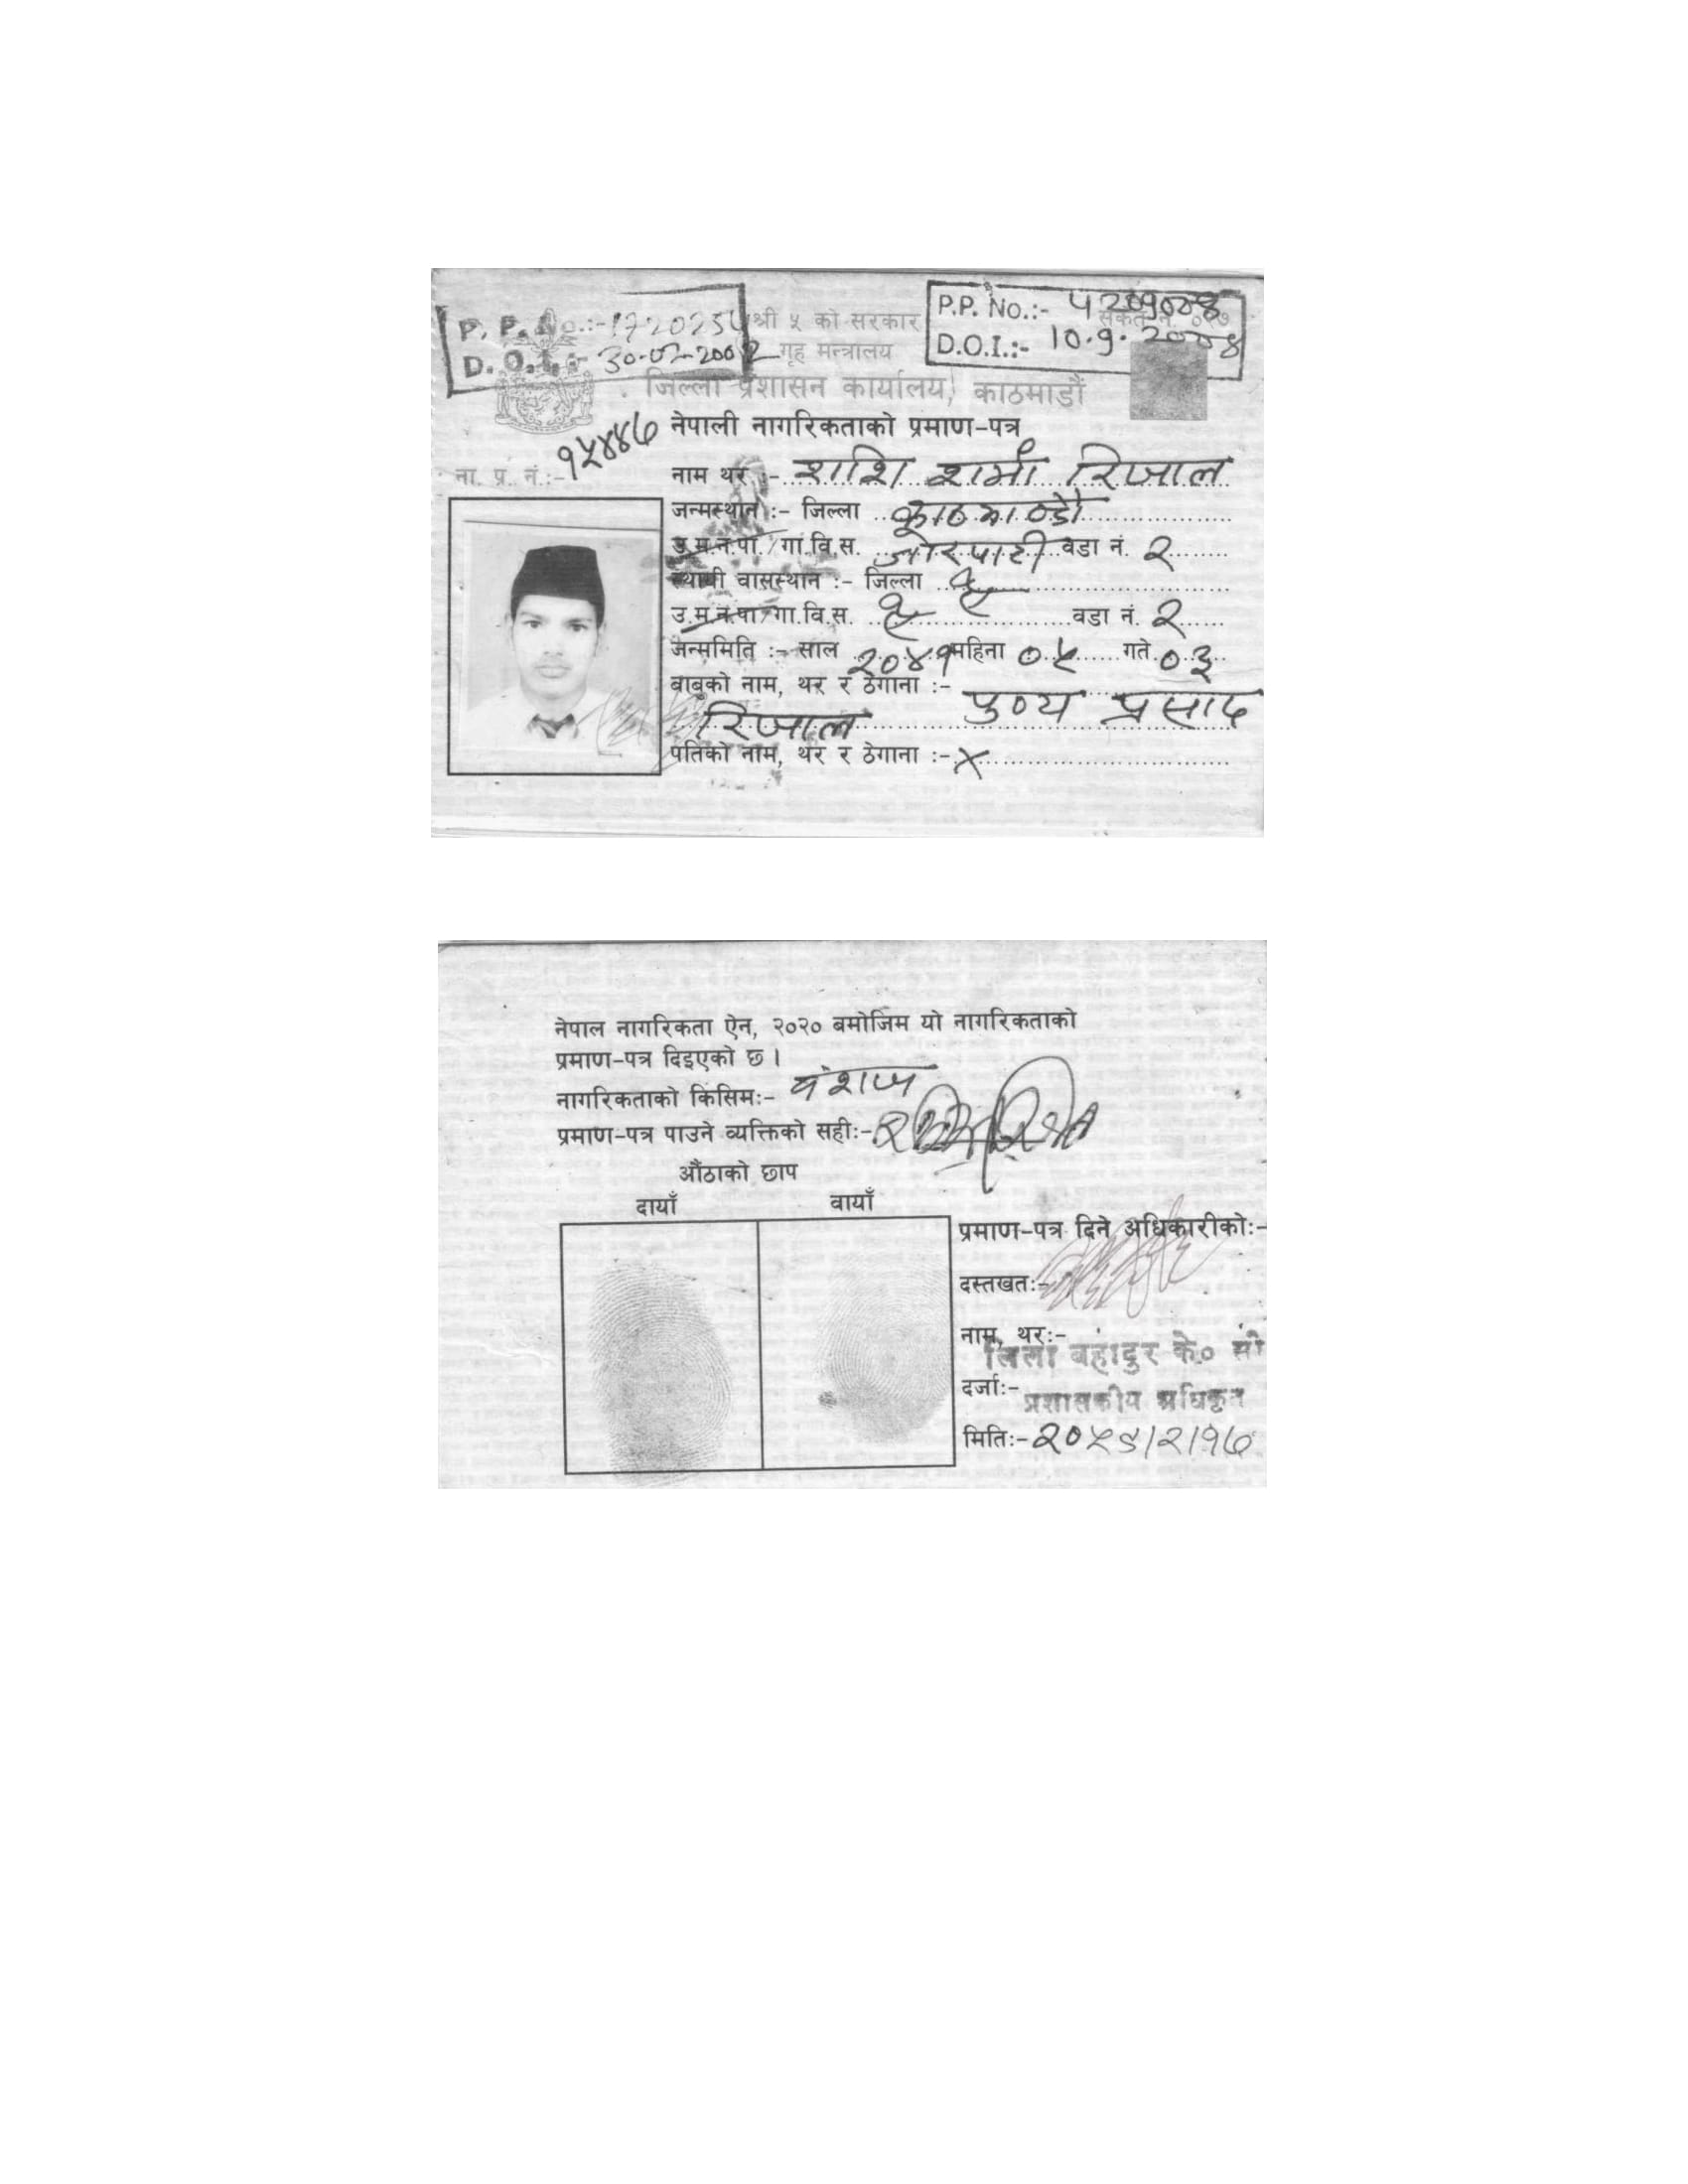 P. P. No.:-
D. O. I.:- 30-07-2002
श्री ५ को सरकार
गृह मन्त्रालय
P.P. No.:-
D.O.I.:- 10.9.2008
जिल्ला प्रशासन कार्यालय, काठमाडौं
नेपाली नागरिकताको प्रमाण-पत्र
ना. प्र. नं.:- १५४४७
नाम थर :- शशि शर्मा रिजाल
जन्मस्थान :- जिल्ला काठमाण्डौ
उ.म.न.पा./गा.वि.स. जोरपाटी वडा नं. २
स्थायी वासस्थान :- जिल्ला
उ.म.न.पा/गा.वि.स. वडा नं. २
जन्ममिति :- साल २०४१ महिना ०५ गते ०३
बाबुको नाम, थर र ठेगाना :- पुण्य प्रसाद
रिजाल
पतिको नाम, थर र ठेगाना :- x
नेपाल नागरिकता ऐन, २०२० बमोजिम यो नागरिकताको
प्रमाण-पत्र दिइएको छ।
नागरिकताको किसिम:- वंशज
प्रमाण-पत्र पाउने व्यक्तिको सही:-
औंठाको छाप
दायाँ वायाँ
प्रमाण-पत्र दिने अधिकारीको:-
दस्तखत:-
नाम, थर:-
बहादुर के० सी
दर्जा:- प्रशासकीय अधिकृत
मिति:- २०५९/२/१७